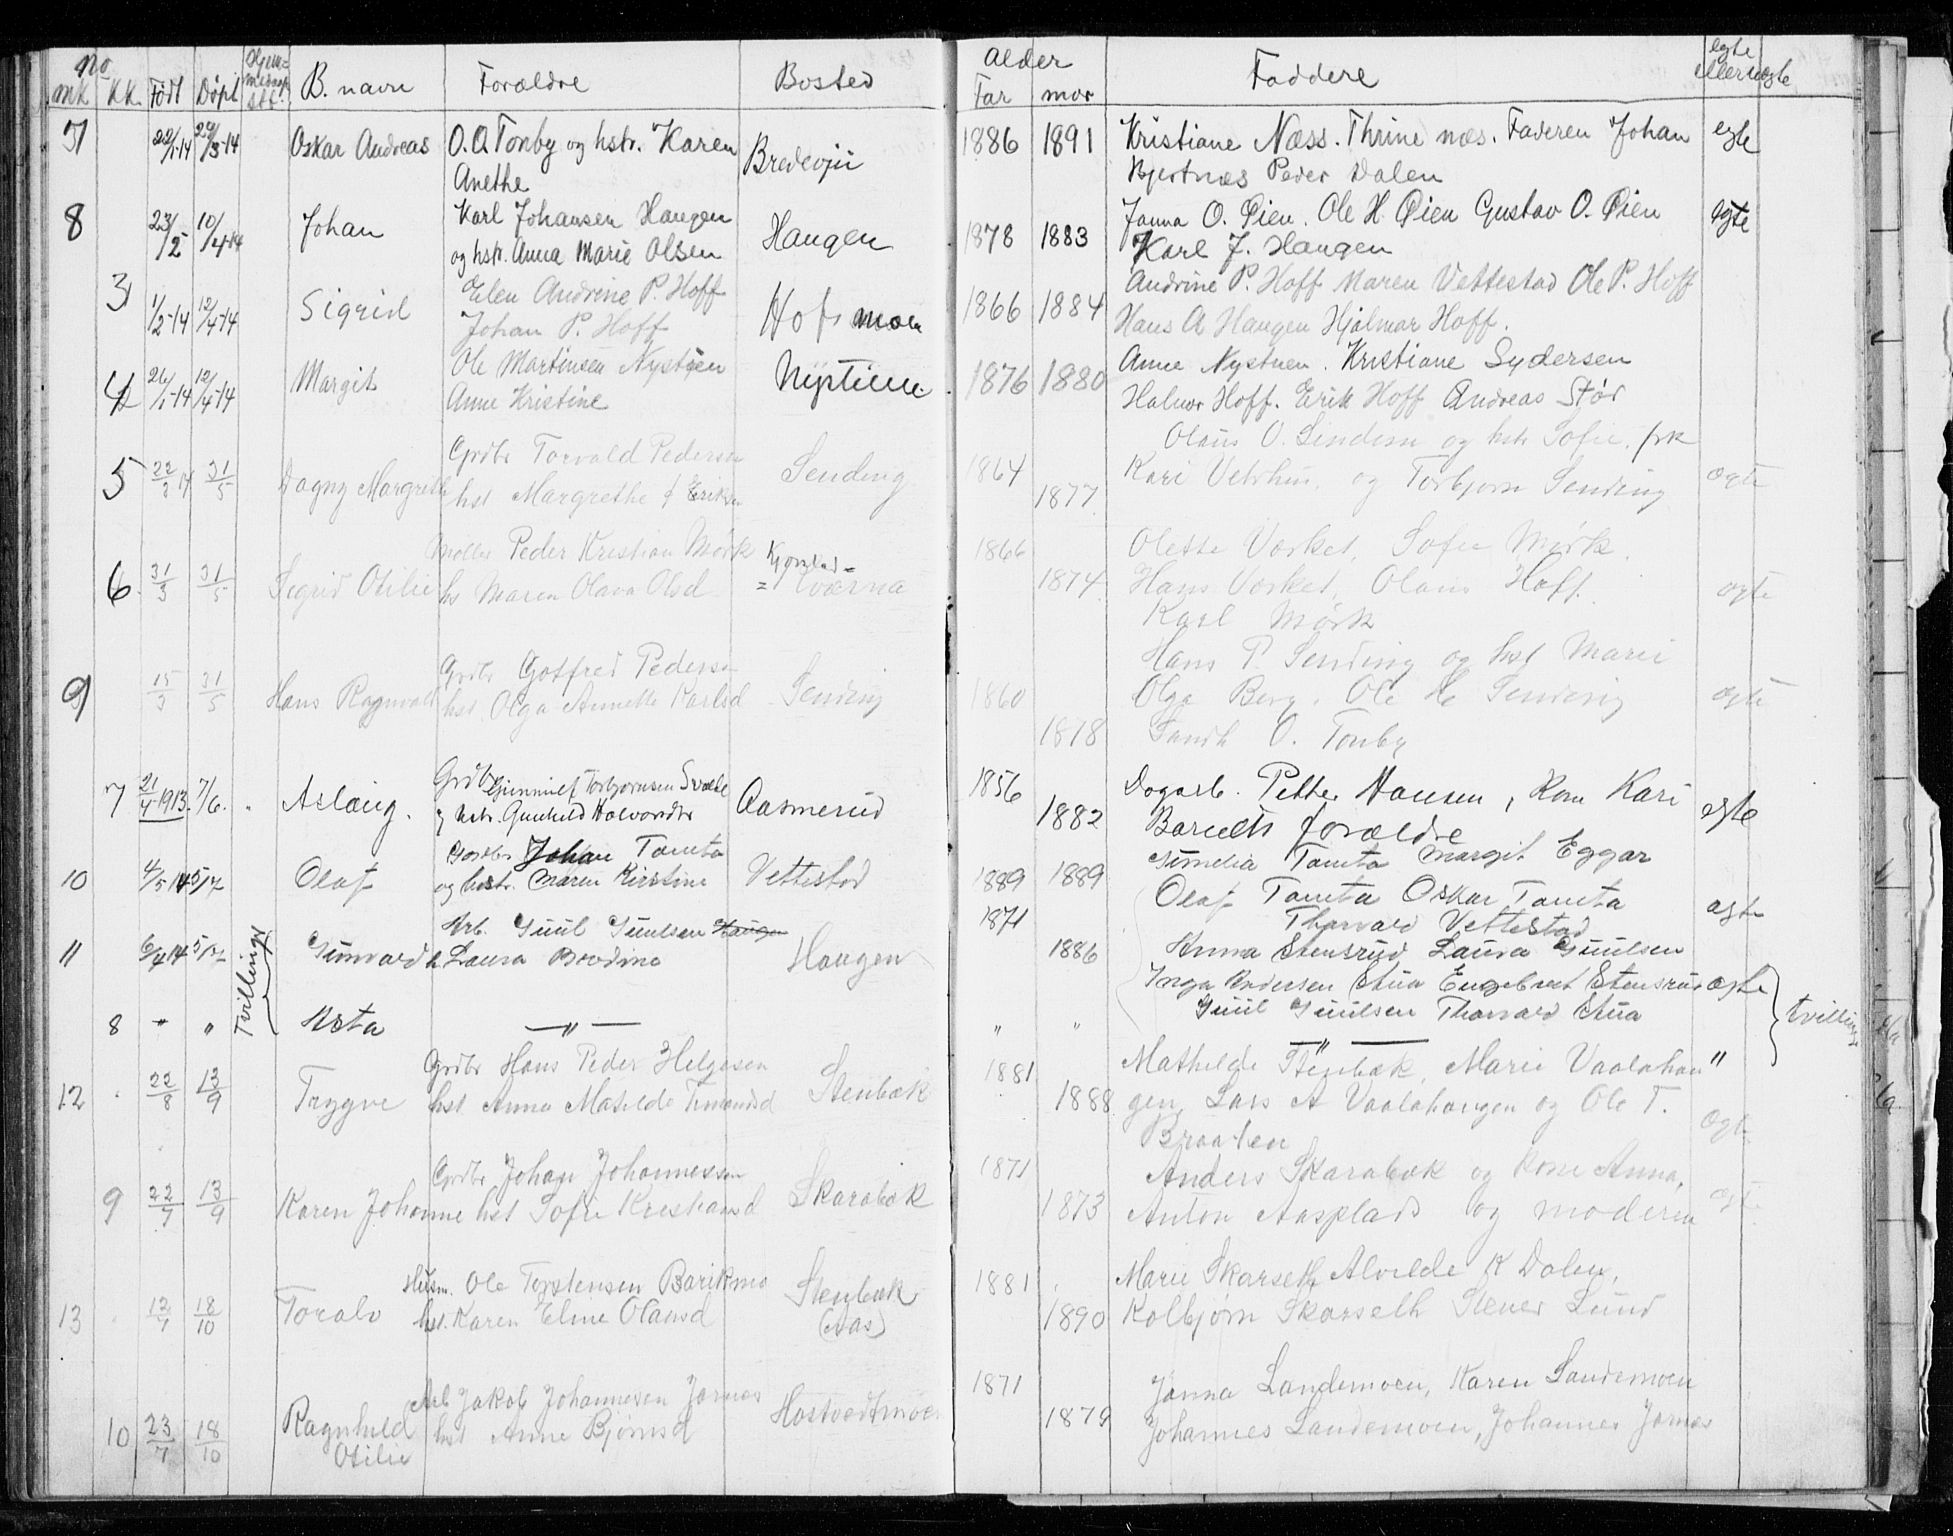 No
mk. KK. Født Døpt Hjem-medøpt stf. B. navn Forældre Bosted Alder Far mor Faddere egte eller uegte
7 22/1-14 29/3-14 Oskar Andreas O.A. Tonby og hstr. Karen 1886 1891 Kristiane Næss. Thrine næs. Faderen Johan egte
Anethe Bjertnæs Peder Dalen
8 23/2 10/4-14 Johan Karl Johansen Haugen Haugen 1878 1883 Janna O. Øien. Ole H. Øien Gustav O. Øien egte
og hstr. Anna Marie Olsen Karl J. Haugen
3 1/2-14 12/4-14 Sigrid Elen Andrine P. Hoff Hofsmoen 1866 1884 Andrine P. Hoff Maren Vettestad Ole P. Hoff
Johan P. Hoff Hans A Haugen Hjalmar Hoff.
4 26/1-14 12/4-14 Margit Ole Martinsen Nystuen 1876 1880 Anne Nystuen. Kristiane Sydersen
Anne Kristine Halvor Hoff. Erik Hoff Andreas Stør
Olaus O. og hstr Sofie, frk
5 31/5 Dagny Margrethe Grdbr Torvald Pedersen Sending 1864 Kari og Torbjørn Sending ægte
hst Margrethe f Eriksen 1877
6 31/3 31/5 Sigrid Otilie Peder Kristian Mørk 1866 Olette Sofie Mørk.
hs Maren Olava Olsd 1874 Hans Olaus Hoff ægte
Karl Mørk
9 15/3 31/5 Hans Ragnvald Grdbr Gotfred Pedersen Sending 1860 Hans P. Sending og hst Marie
hst. Olga Annette Karlsd Olga Berg, Ole H Sending ægte
1878 O. Tonby
7 21/4 1913. 7/6. Aslaug. Grdbr Torbjørnsen Aasmerud 1856 Dagarb. Petter Hansen, Kone Kari
og hstr. Gunhild Halvorsdtr 1882 Barnets forældre egte
10 4/5 14 5/7 Olaf Johan Tomta Vettestad 1889 1889 Tomta Margit Eggar
og hstr. Maren Kirstine Olaf Tomta Oskar Tomta ægte
Thorvald Vettestad
11 6/4 14 5/7 Tvillinger Gunvald Arb. Guul Guulsen Haugen Haugen 1871 1886 Anna Stensrud Laura Guulsen
Laura Inga Andersen Engebret Stensrud ægte
Guul Guulsen Thorvald tvillinger
8 " " Asta — " — " " — " — "
12 22/8 13/9 Trygve Grdbr Hans Peder Helgesen Stenbæk 1881 Mathilde Stenbæk, Marie Vaalahau
hst Anna Matilde 1888 gen, Lars A Vaalahaugen og Ole T.
Braaten ægte
9 22/7 13/9 Karen Johanne Grdbr Johan Johannessen Skarabæk 1871 Anders Skarabæk og kone Anna,
hst Sofie Kristiansd 1873 Anton Aasplads og moderen ægte
13 12/7 18/10 Toralv Husm. Ole Torstensen Barikmo Stenbæk 1881 Marie Skarseth Alvilde K Dalen,
hst. Karen Eline Olausd (Aas) 1890 Kolbjørn Skarseth Stener Lund
10 23/7 18/10 Ragnhild Arb Jakob Johannesen Jarnæs Hostvedtmoen 1871 Janna Landemoen, Karen Landemoen
Otilie hst Anne Bjørnsd 1879 Johannes Landemoen, Johannes Jarnæs